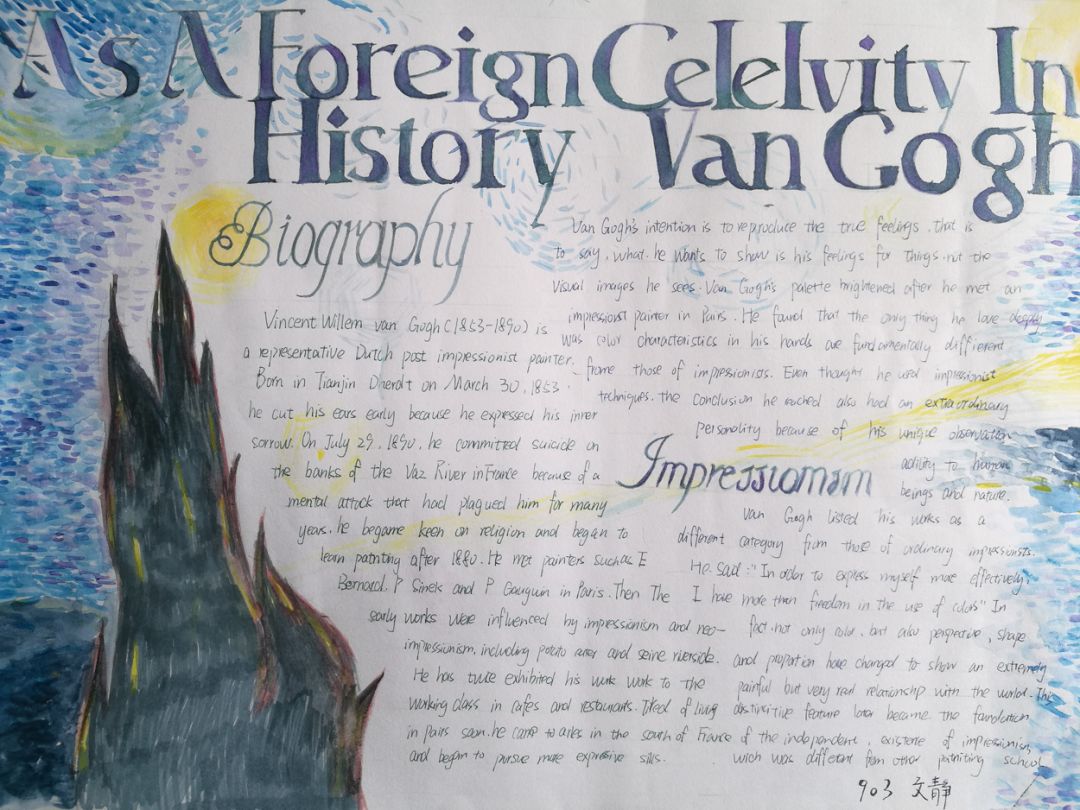 As A Foreign Celelvity In
History Van Gogh
Biography
Vincent Willem van Gogh (1853-1890) is
a representative Dutch post impressionist painter.
Born in Tianjin Dneralt on March 30, 1853.
he cut his ears early because he expressed his inner
sorrow. On July 29, 1890, he committed suicide on
the banks of the Vaz River in France because of a
mental attack that had plagued him for many
years. he begame keen on religion and began to
learn patnting after 1880. He met painters suchas E
Bernard. P Sinek and P Gauguin in Paris. Then The
early works were influenced by impressionism and neo-
impressionism, including potato eater and seine riverside.
He has twice exhibited his work work to The
working class in cafes and restaurants. Tired of living
in Pairs soon. he came to arles in the south of France
and began to pursue more expressive skills.
Van Gogh's intention is to reproduce the true feelings. that is
to say, what he wants to show is his feelings for things. not the
visual images he sees. Van Gogh's palette brightened after he met an
impressionist painter in Pairs. He found that the only thing he love deeply
was color characteristics in his hands are fundamentally diffierent
frome those of impressionists. Even thought he used impressionist
techniques. the conclusion he reached also had an extraordinary
personality because of his unique observation
ability to human
beings and nature.
Impressionism
Van Gogh listed his works as a
different category from those of ordinary impressionists.
He said: "In order to express myself more effectively,
I have more than freedom in the use of colors" In
fact. not only color. but also perspective, shape
and proportion have changed to show an extremely
painful but very real relationship with the world. This
distinctive feature later became the foundation
of the independent, existene of impressionism,
wich was different from other patniting school
903 文静